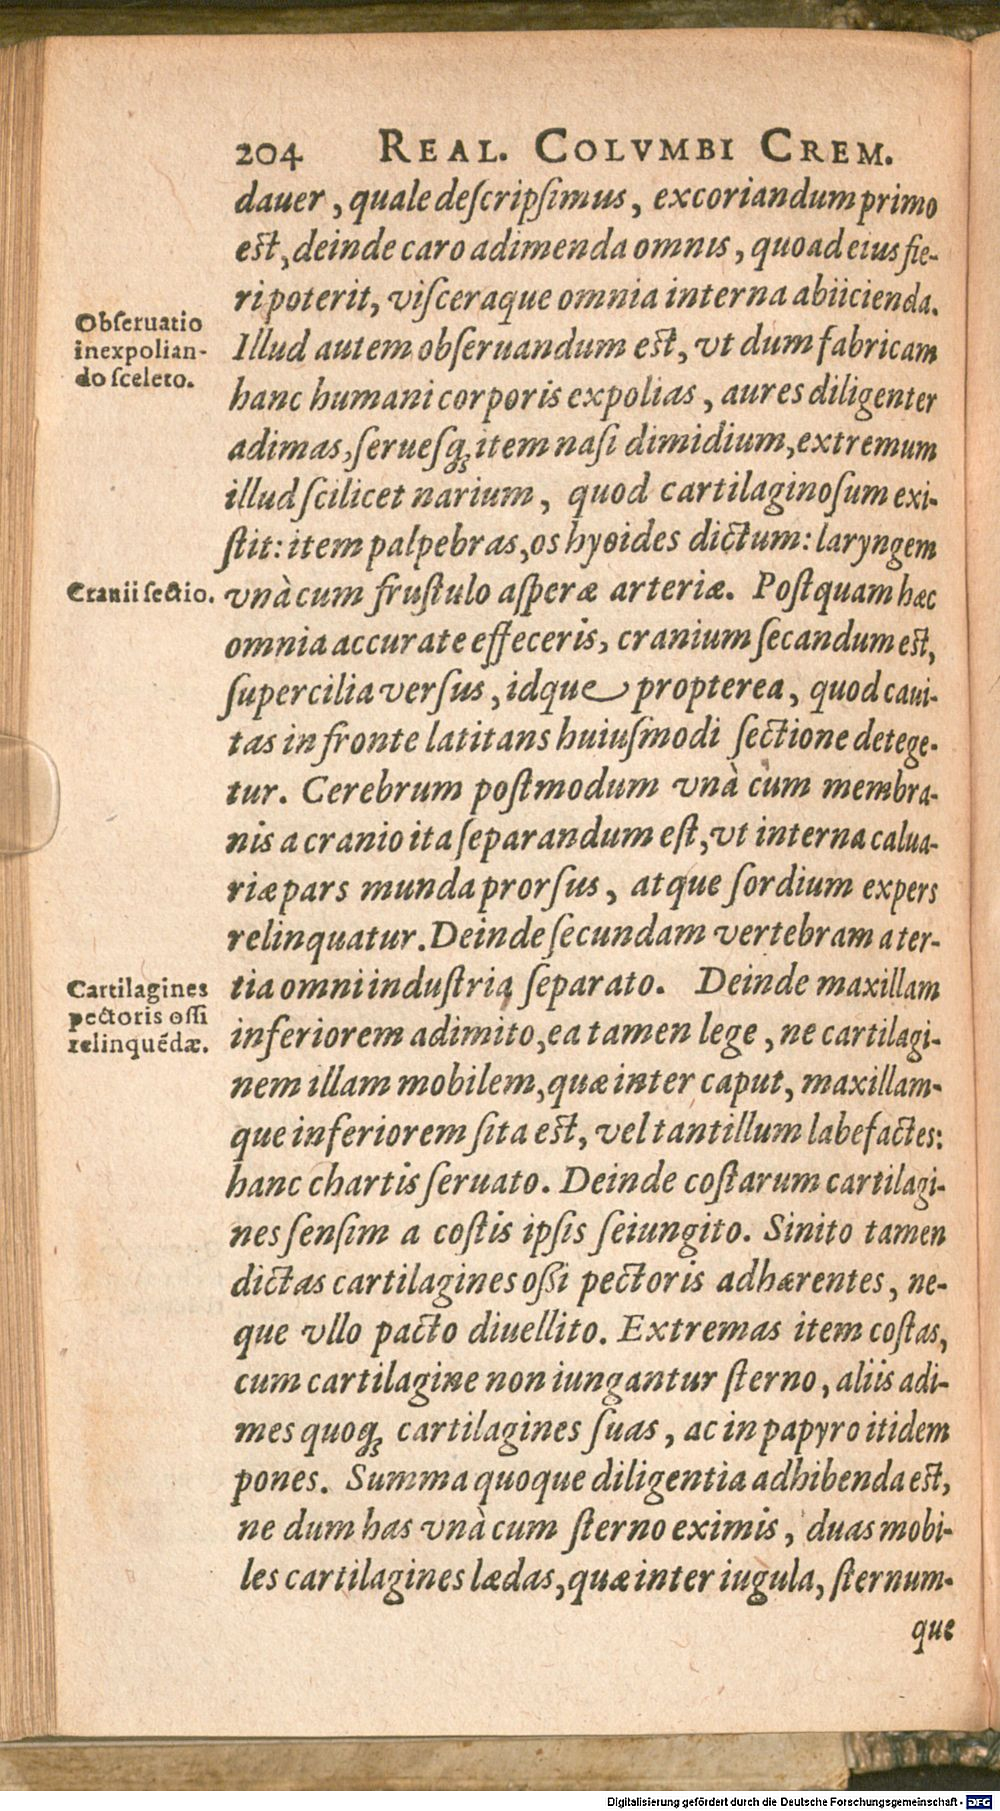 204 REAL. COLVMBI CREM.
dauer, quale deſcripſimus, excoriandum primo
eſt, deinde caro adimenda omnis, quoad eius fie-
ri poterit, viſceraque omnia interna abiicienda.
Obſeruatio
in expolian-
do ſceleto.
Illud autem obſeruandum eſt, vt dum fabricam
hanc humani corporis expolias, aures diligenter
adimas, ſerueſq; item naſi dimidium, extremum
illud ſcilicet narium, quod cartilaginoſum exi-
ſtit: item palpebras, os hyoides dictum: laryngem
Cranii ſectio.
vnà cum fruſtulo aſperæ arteriæ. Poſtquam hæc
omnia accurate effeceris, cranium ſecandum eſt,
ſupercilia verſus, idque propterea, quod caui-
tas in fronte latitans huiuſmodi ſectione detege-
tur. Cerebrum poſtmodum vnà cum membra-
nis a cranio ita ſeparandum eſt, vt interna calua-
riæ pars munda prorſus, atque ſordium expers
relinquatur. Deinde ſecundam vertebram a ter-
Cartilagines
pectoris oſſi
relinquẽdæ.
tia omni induſtria ſeparato. Deinde maxillam
inferiorem adimito, ea tamen lege, ne cartilagi-
nem illam mobilem, quæ inter caput, maxillam-
que inferiorem ſita eſt, vel tantillum labefactes:
hanc chartis ſeruato. Deinde coſtarum cartilagi-
nes ſenſim a coſtis ipſis ſeiungito. Sinito tamen
dictas cartilagines oſſi pectoris adhærentes, ne-
que vllo pacto diuellito. Extremas item coſtas,
cum cartilagine non iungantur ſterno, aliis adi-
mes quoq; cartilagines ſuas, ac in papyro itidem
pones. Summa quoque diligentia adhibenda eſt,
ne dum has vnà cum ſterno eximis, duas mobi-
les cartilagines lædas, quæ inter iugula, ſternum-
que
Digitalisierung gefördert durch die Deutsche Forschungsgemeinschaft - DFG